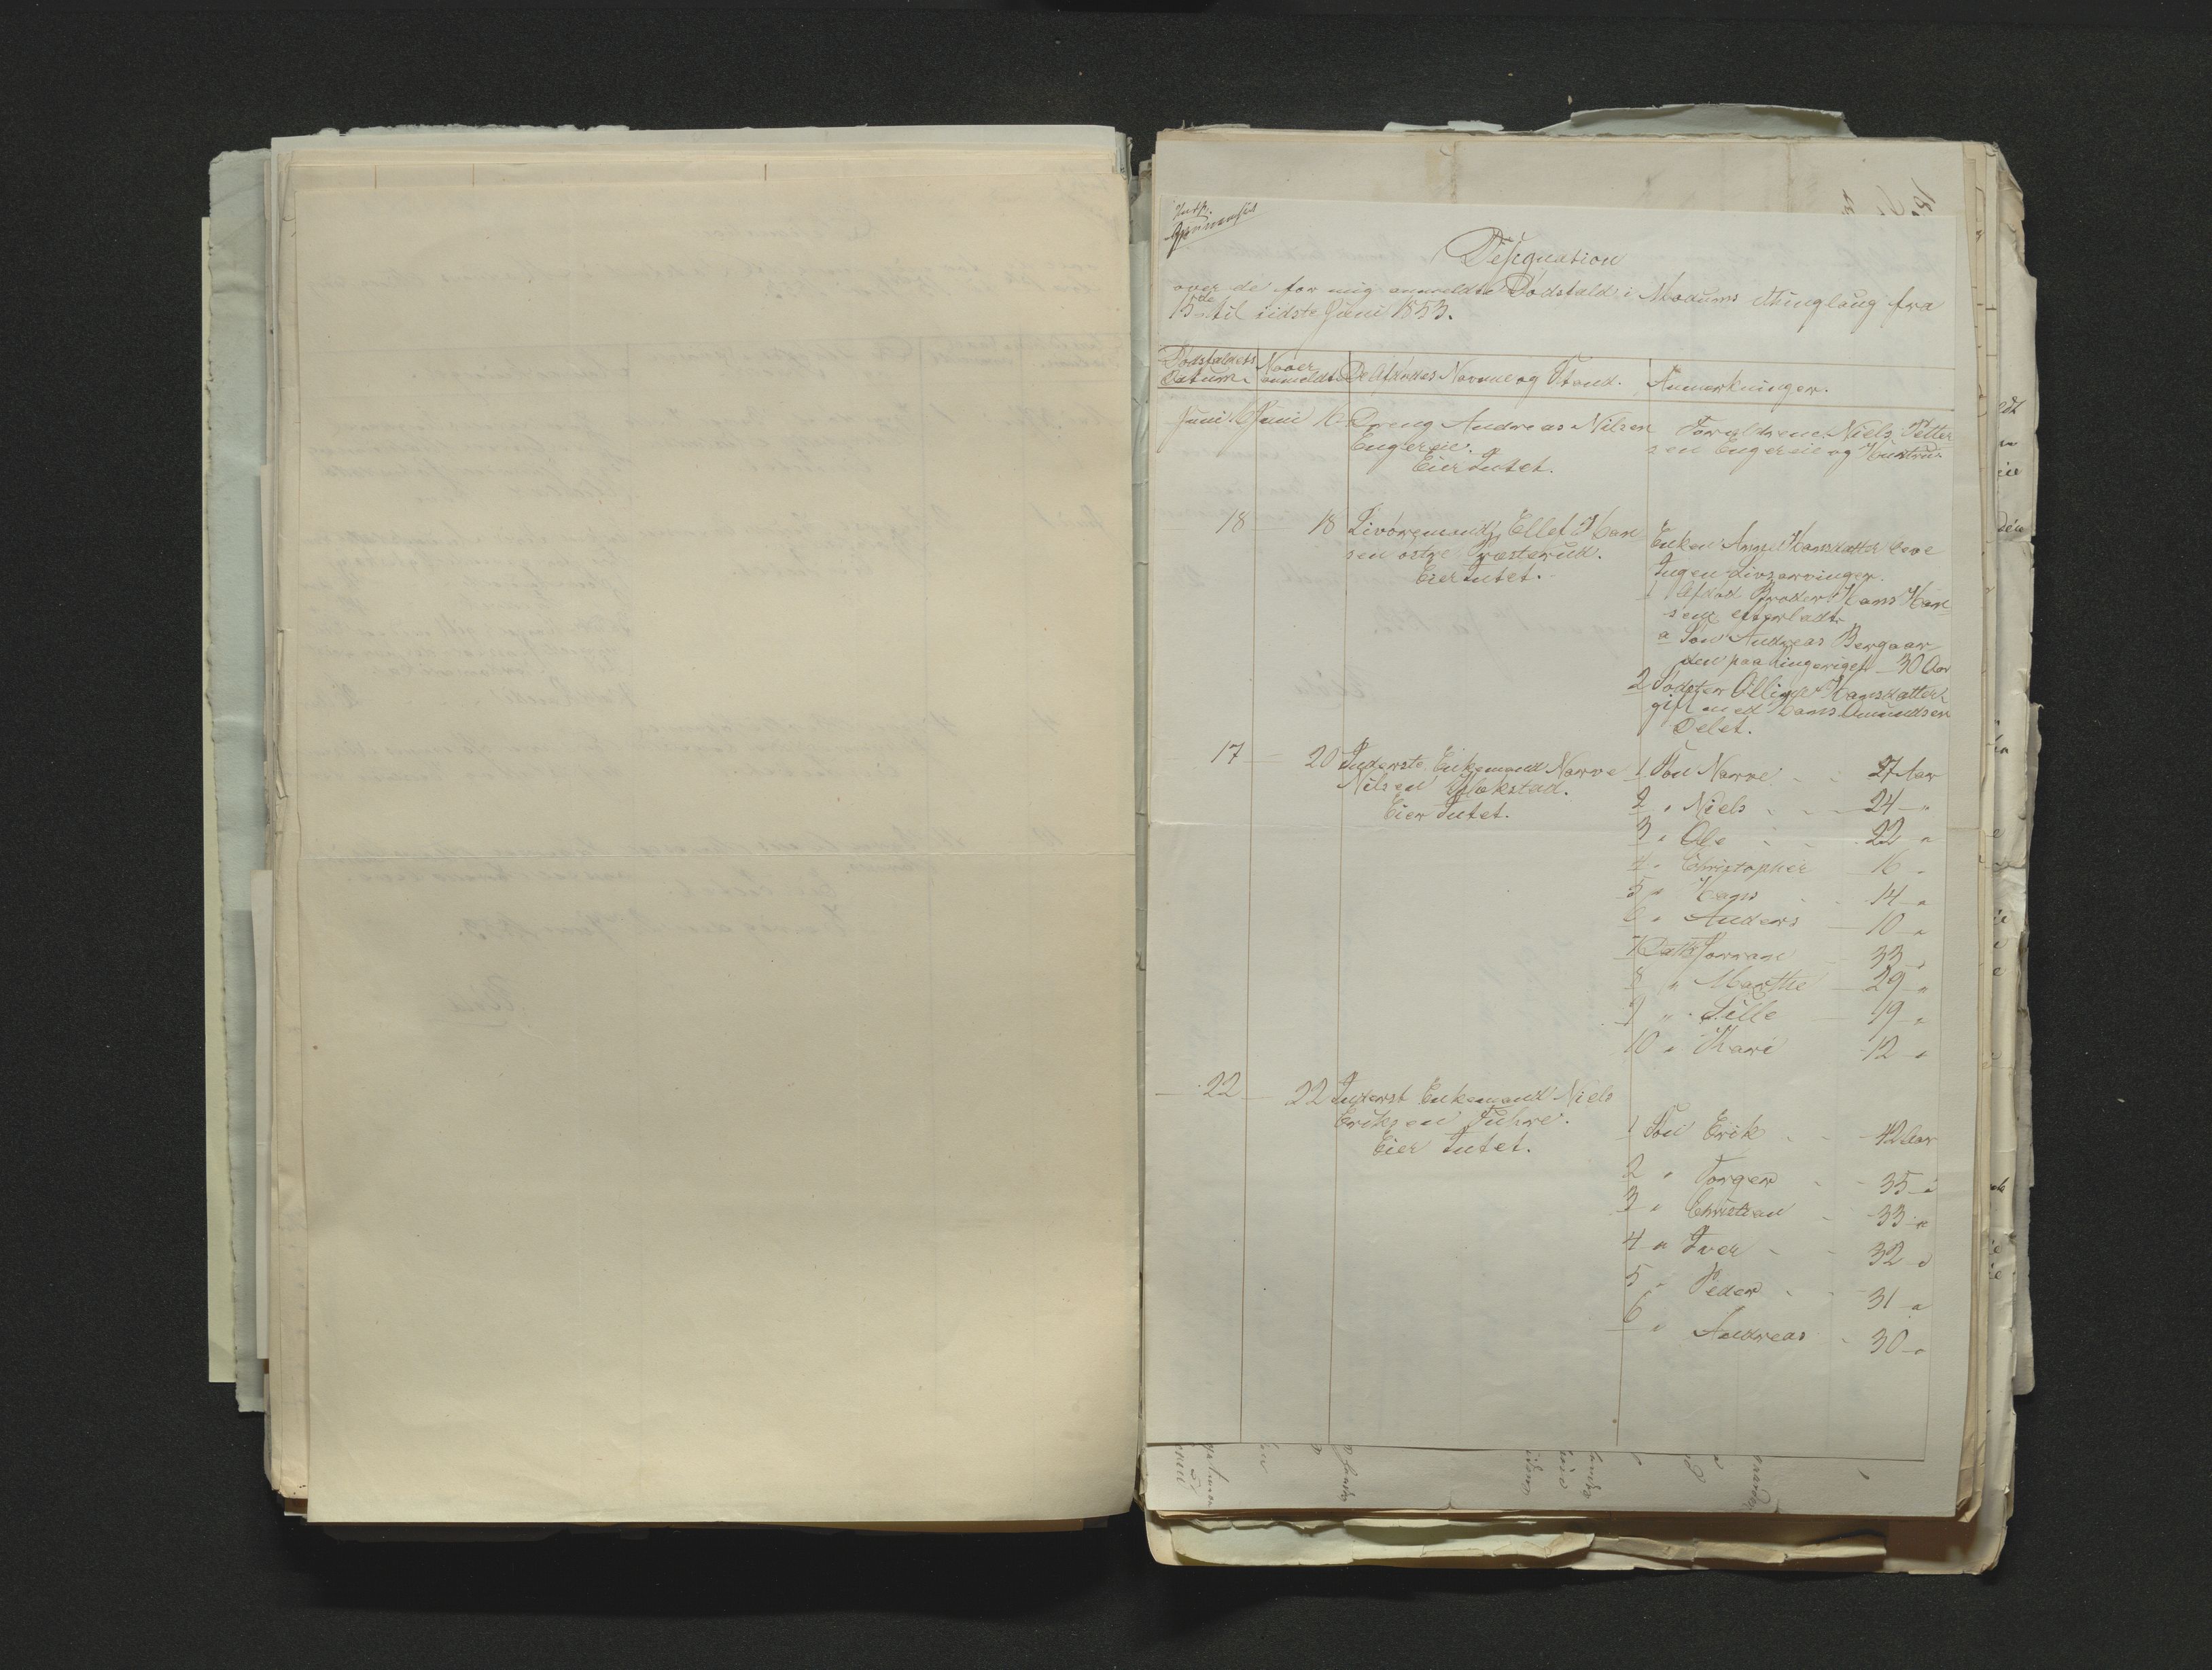 Designation
over de for mig anmeldte Dödsfald i Modums Thinglaug fra
15de til sidste Juni 1853.
Dödsfaldets Datum. Naar anmeldt De Afdödes Navne og Stand. Anmerkninger.
Juni 16 Juni 16 Dreng Andreas Nilsen
Engereie.
Eier Intet.
Forældrene Niels Petter
sen Engereie og Hustru.
18 18 Livöremand Ellef Han
sen östre Præsterud.
Eier Intet.
Enken Anne Hansdatter leve
Ingen Livsarvinger.
1 Afdöd Broder Hans Han
sens efterladte
a Sön Andreas Bergaar
den paa Ringerige 30 Aar
2 Södster Olliga Hansdatter
gift med Hans Amundsen
Delet.
17 20 Inderste Enkemand Narve
Nilsen Blokstad.
Eier Intet.
1 Sön Narve 27 Aar
2 " Niels 24 "
3 " Ole 22 "
4 " Christopher 16 "
5 " Hans 14 "
6 " Anders 10 "
7 Datt. Jorran 33 "
8 " Marthe 29 "
9 " Sille 19 "
10 " Kari 12 "
22 22 Inderst Enkemand Niels
Eriksen Fuhre.
Eier Intet.
1 Sön Erik 42 Aar
2 " Torger 35 "
3 " Christian 33 "
4 " Iver 32 "
5 " Peder 31 "
6 " Andreas 30 "